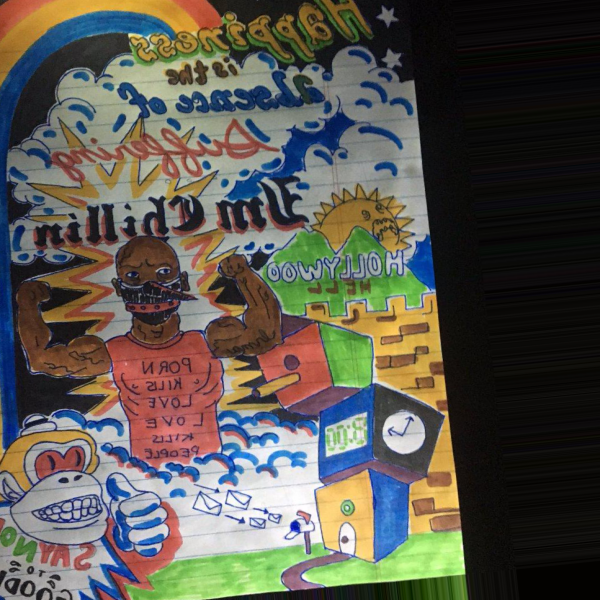 Happiness
is the
absence of
Suffering
I'm Chillin
HOLLYWOO
HELL
PORN
KILLS
LOVE
LOVE
KILLS
PEOPLE
8:00
SAY NO
TO
GOOD